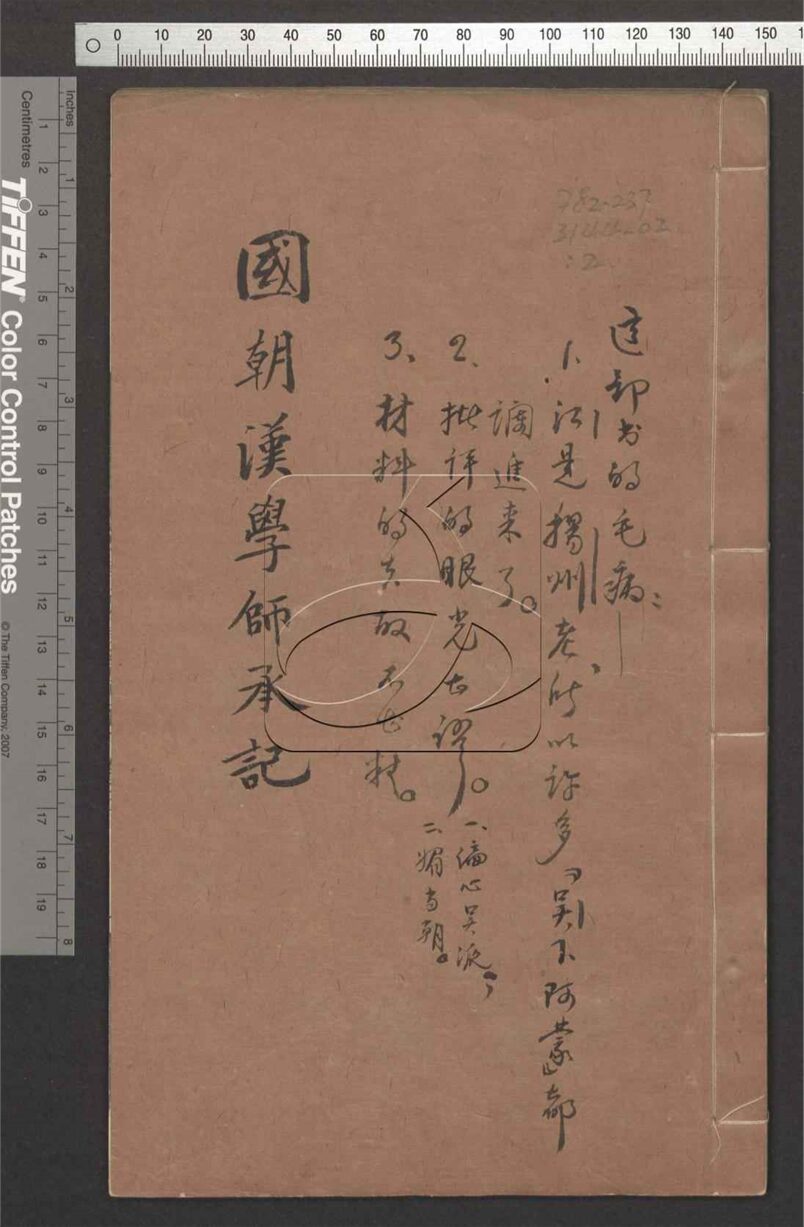 0 10 20 30 40 50 60 70 80 90 100 110 120 130 140 150
782.237
3144-02
:2
这部书的毛病：
1、江是揚州老，所以許多「吳下阿蒙」都
進来了。
2、批評的眼光太謬。
一、偏心吳派；
二、媚当朝。
3、材料的去取不精。
國朝漢學師承記
Inches
1 2 3 4 5 6 7 8
Centimetres
1 2 3 4 5 6 7 8 9 10 11 12 13 14 15 16 17 18 19
TIFFEN® Color Control Patches
© The Tiffen Company, 2007